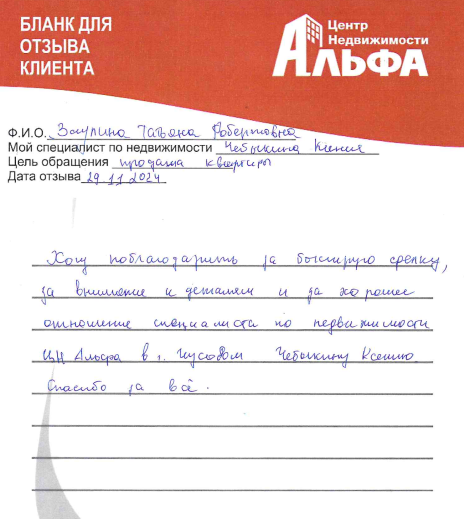 БЛАНК ДЛЯ
ОТЗЫВА
КЛИЕНТА
Центр
Недвижимости
АЛЬФА
Ф.И.О. Заулина Татьяна Робертовна
Мой специалист по недвижимости Чебыкина Ксения
Цель обращения продажа квартиры
Дата отзыва 29.11.2024
Хочу поблагодарить за быструю сделку,
за внимание к деталям и за хорошее
отношение специалиста по недвижимости
ЦН Альфа в г. Чусовом Чебыкину Ксению.
Спасибо за всё.